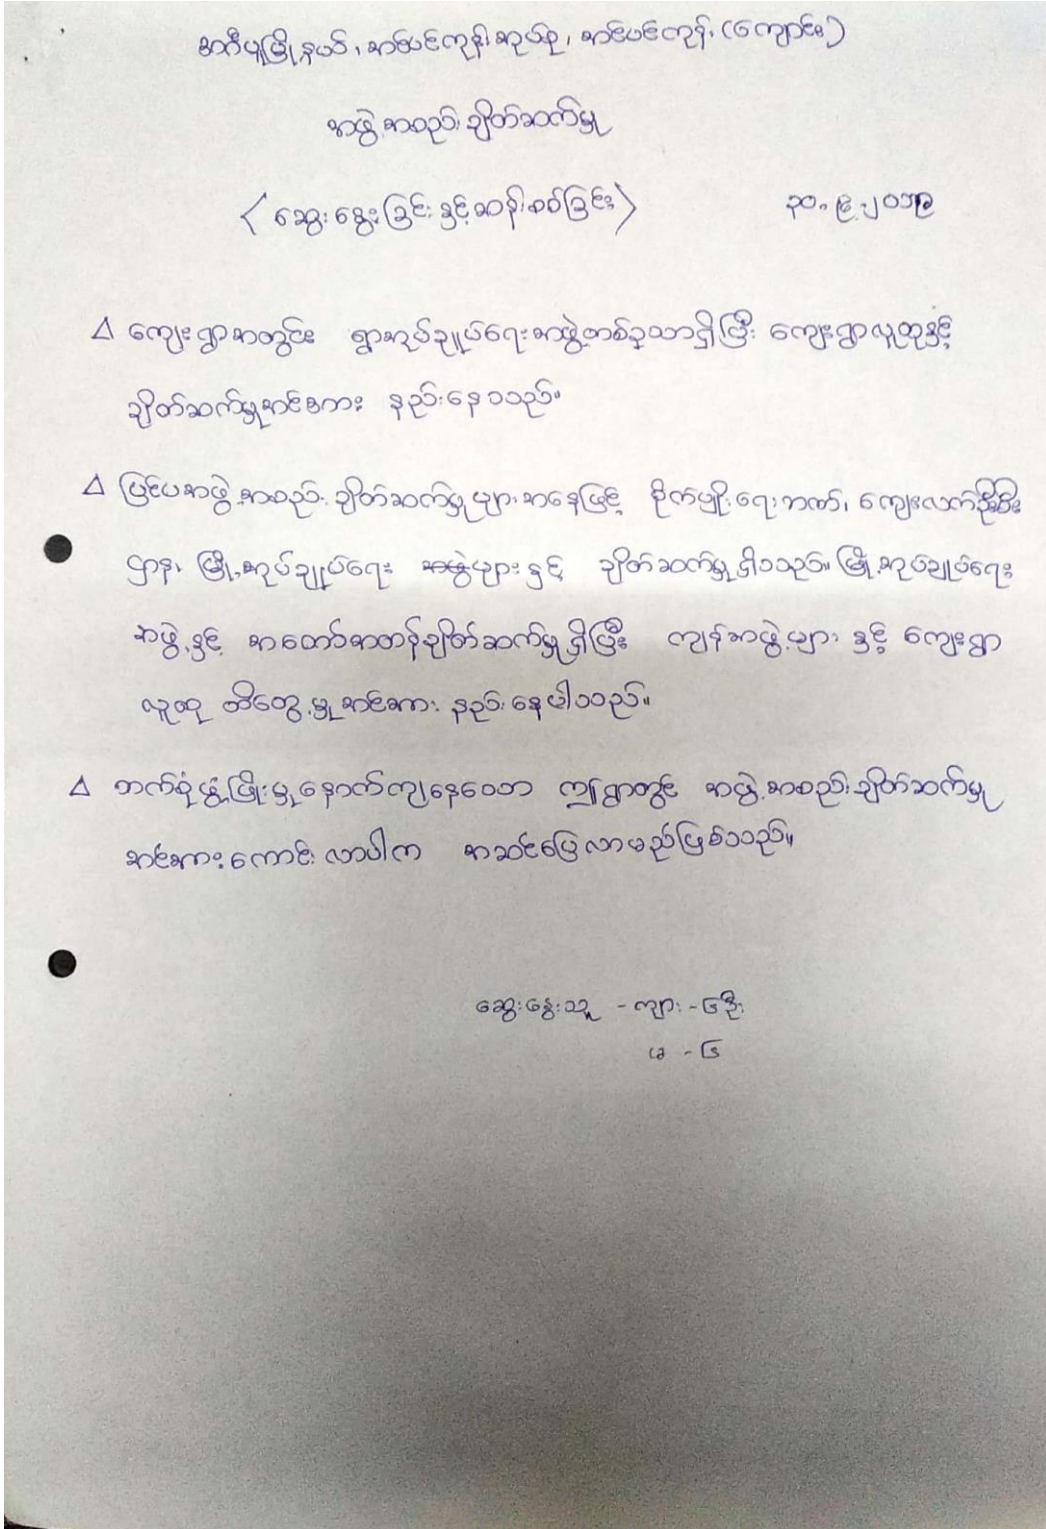 အင်္ဂပူမြို့နယ်၊ အင်ပင်ကုန်းအုပ်စု၊ အင်ပင်ကုန်း (ကျောင်း)
အဖွဲ့အစည်းချိတ်ဆက်မှု
〈ဆွေးနွေးခြင်းနှင့်ဆန်းစစ်ခြင်း〉 ၃၀.၉.၂၀၁၉
△ ကျေးရွာအတွင်း ရွာအုပ်ချုပ်ရေးအဖွဲ့တစ်ခုသာရှိပြီး ကျေးရွာလူထုနှင့်
ချိတ်ဆက်မှုအင်အား နည်းနေသည်။
△ ပြင်ပအဖွဲ့အစည်းချိတ်ဆက်မှုများအနေဖြင့် စိုက်ပျိုးရေးဘဏ်၊ ကျေးလက်ဦးစီး
ဌာန၊ မြို့အုပ်ချုပ်ရေး အဖွဲ့များနှင့် ချိတ်ဆက်မှုရှိသည်။ မြို့အုပ်ချုပ်ရေး
အဖွဲ့နှင့် အတော်အတန်ချိတ်ဆက်မှုရှိပြီး ကျန်အဖွဲ့များ နှင့် ကျေးရွာ
လူထု ထိတွေ့မှုအင်အား နည်းနေပါသည်။
△ ဘက်စုံဖွံ့ဖြိုးမှုနောက်ကျနေသော ဤရွာတွင် အဖွဲ့အစည်းချိတ်ဆက်မှု
အင်အားကောင်းလာပါက အဆင်ပြေလာမည်ဖြစ်သည်။
ဆွေးနွေးသူ - ကျား - ၆ဦး
မ - ၆